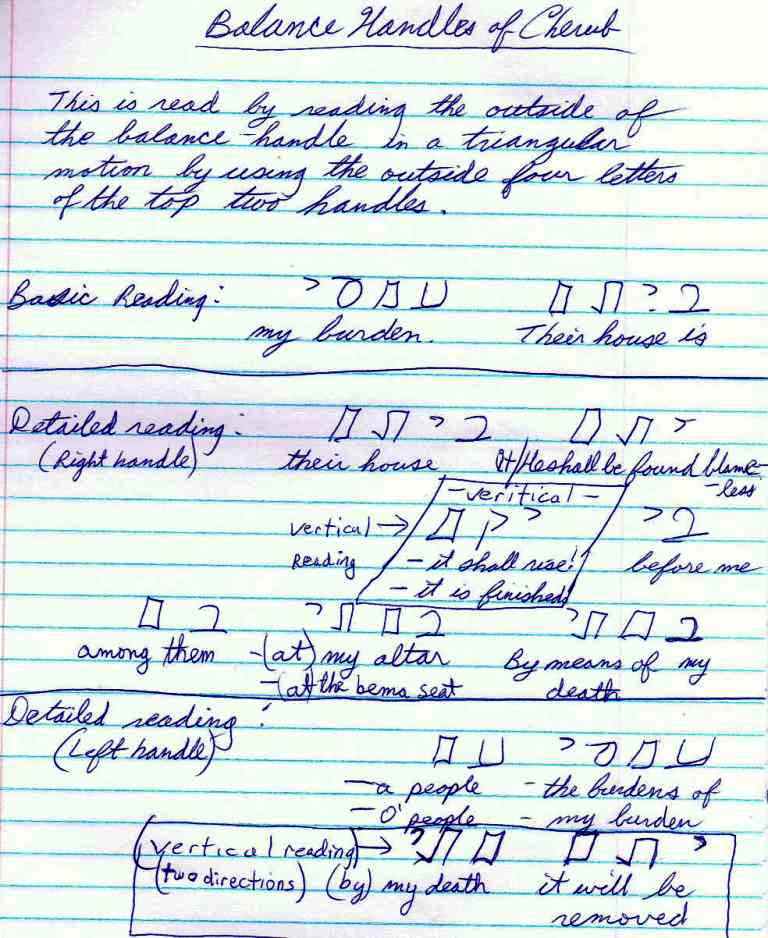 Balance Handles of Cherub
This is read by reading the outside of
the balance-handle in a triangular
motion by using the outside four letters
of the top two handles.
Basic Reading: עםסי ביתם
my burden. Their house is
Detailed reading: ביתם יתם
(Right handle) their house It/He shall be found blame-
-less
-veritical-
vertical → יקם בי
Reading - it shall rise! before me
- it is finished!
בם בםתי בםתי
among them -(at) my altar By means of my
-(at) the bema seat death
Detailed reading:
(Left handle) עם עםסי
- a people - the burdens of
- O' people - my burden
(vertical reading) → םתי יתם
(two directions) (by) my death it will be
removed